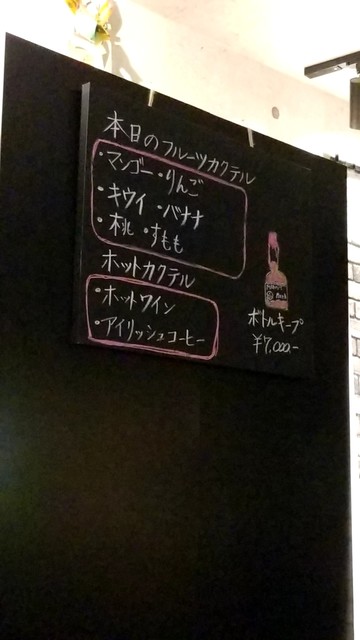 本日のフルーツカクテル
・マンゴー ・りんご
・キウイ ・バナナ
・桃 ・すもも
ホットカクテル
・ホットワイン
・アイリッシュコーヒー
ボトルキープ
¥7,000-